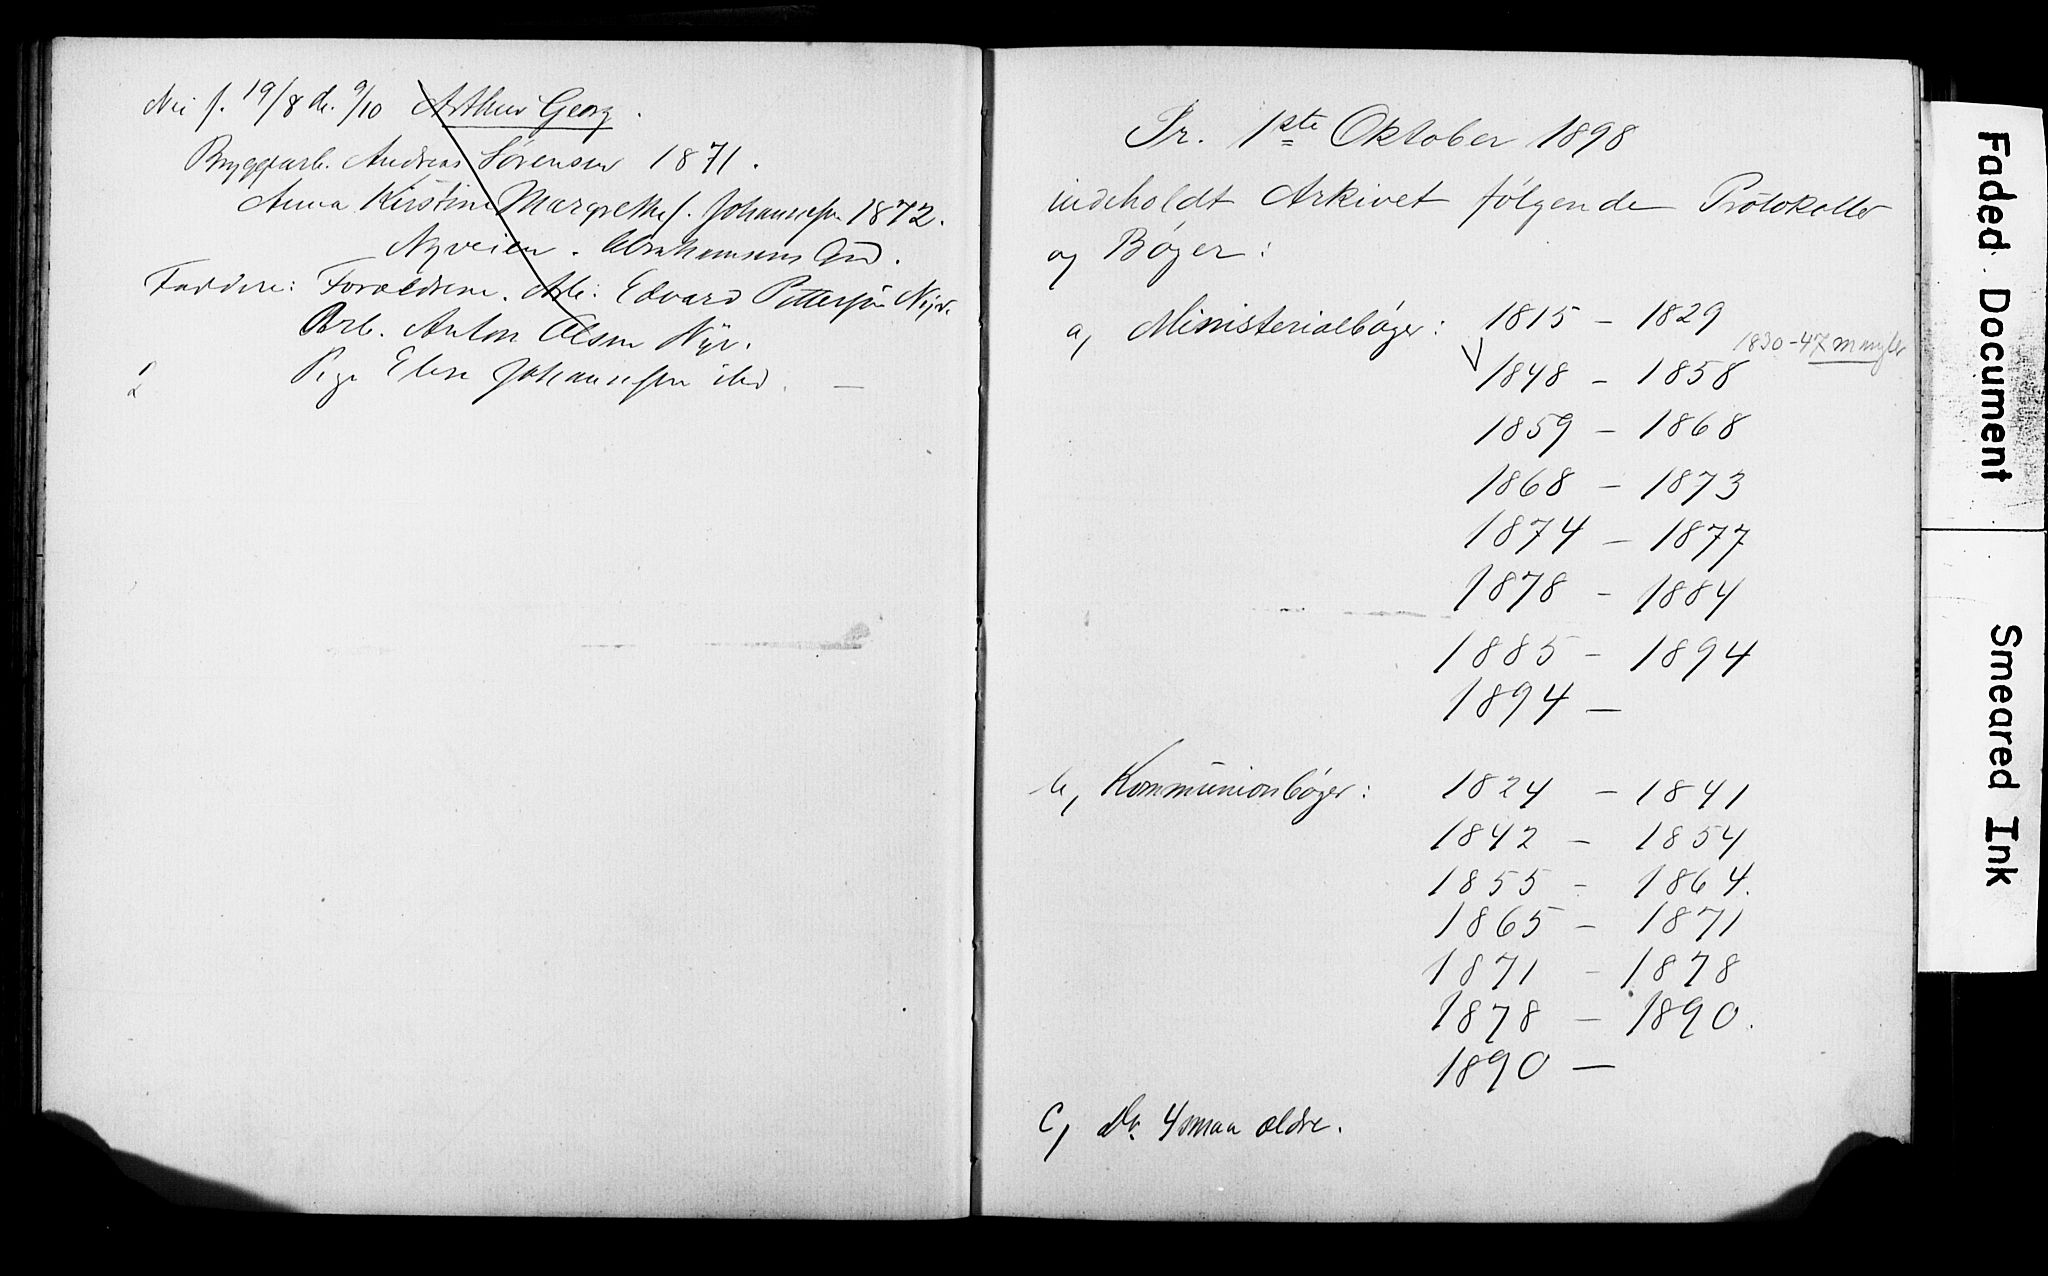 f. 19/8 d. 9/10 Arthur Georg.
Bryggearb. Andreas Sørensen 1871.
Anna Kirstine Margrethe f. Johannessen 1872.
Nyveien. Abrahamsens Grd.
Faddere: Forældrene. Arb: Edvard Pettersen Nyv.
Arb. Anton Olsen Nyv.
Pige Elise Johannessen ibd. —
Pr. 1ste Oktober 1898
indeholdt Arkivet følgende Protokoller
og Bøger:
a, Ministerialbøger: 1815 – 1829
1830-47 mangler
1848 – 1858
1859 – 1868
1868 – 1873
1874 – 1877
1878 – 1884
1885 – 1894
1894 –
b, Kommunionbøger: 1824 – 1841
1842 – 1854
1855 – 1864.
1865 – 1871
1871 – 1878
1878 – 1890.
1890 –
c, Do. 4 smaa ældre.
Faded Document
Smeared Ink